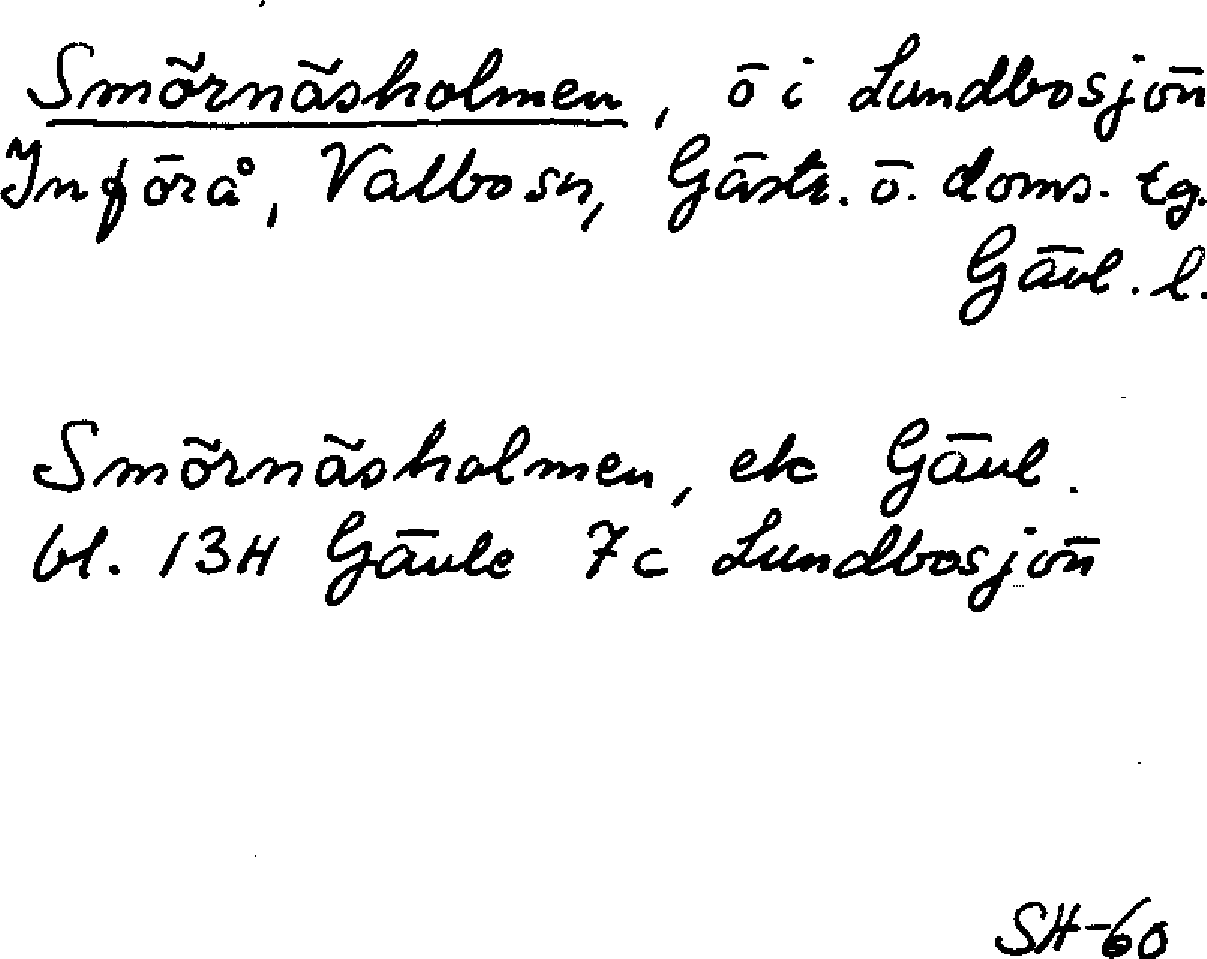 Smörnäsholmen, ö i Lundbosjön
Införå, Valbo sn, Gästr. ö. doms. tg.
Gävl. l.
Smörnäsholmen, ek Gävl.
bl. 13H Gävle 7c Lundbosjön
SH-60